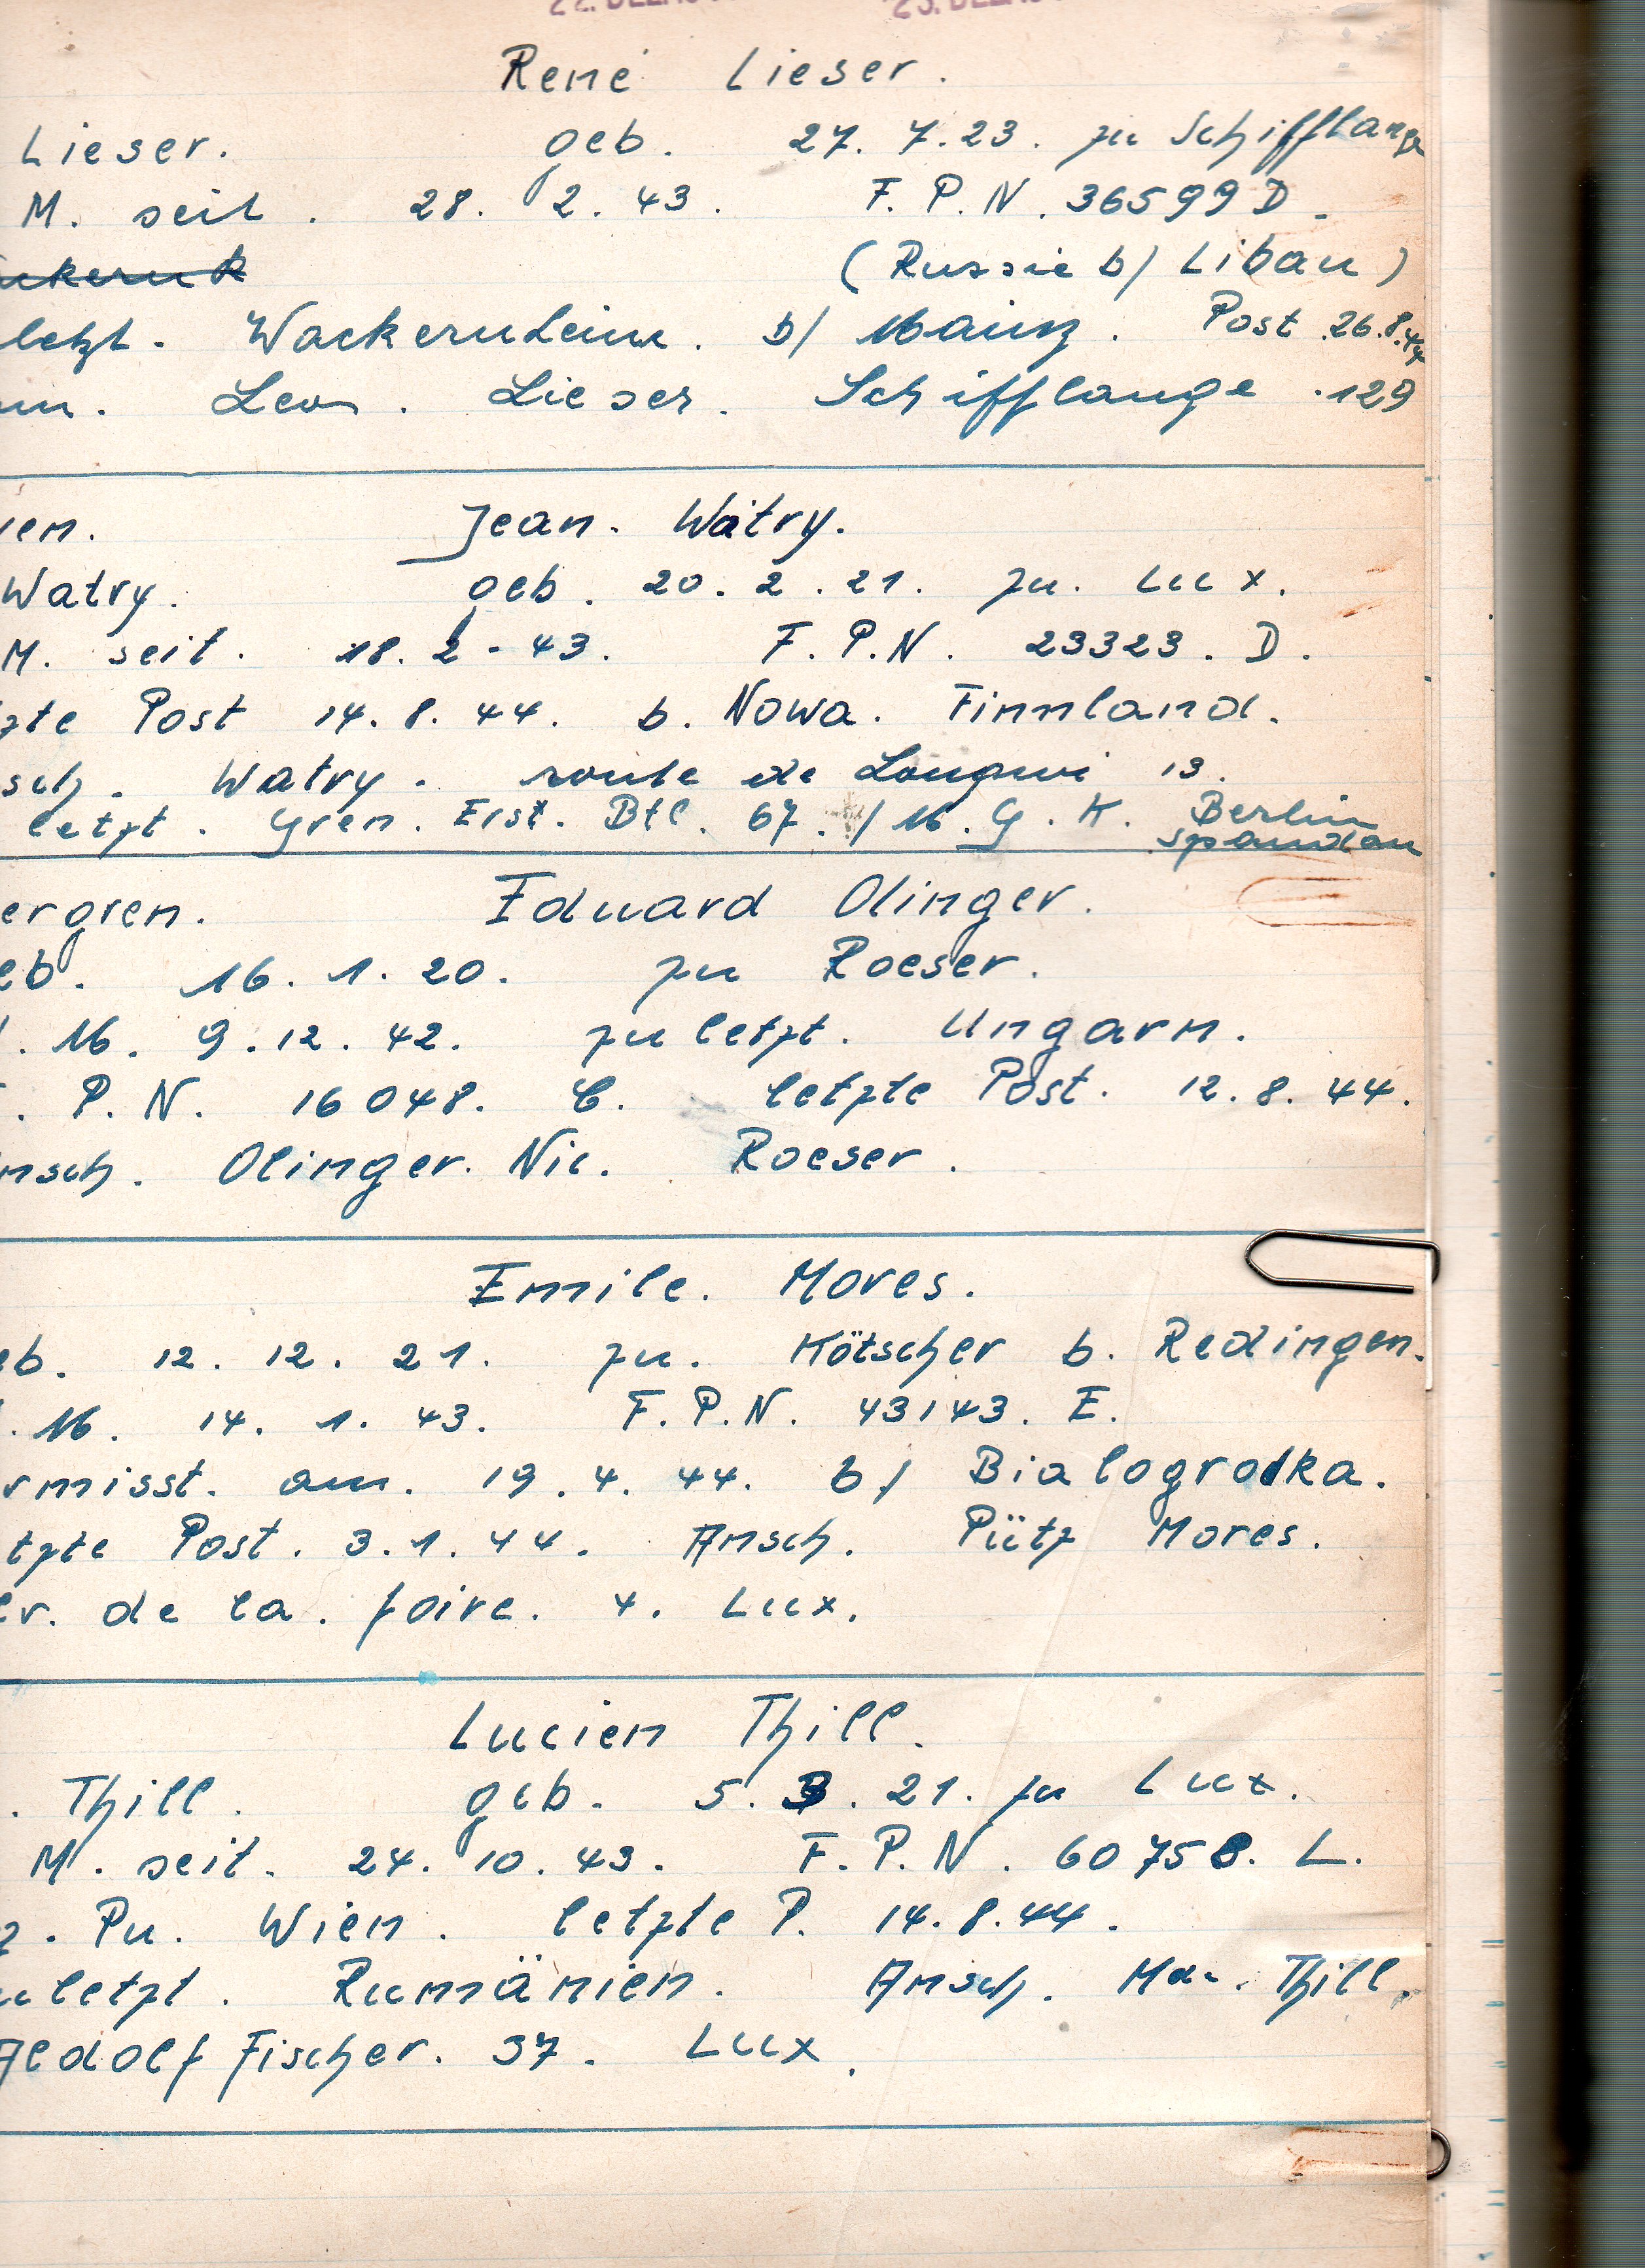 René Lieser.
Lieser. geb. 27. 7. 23. zu Schifflange
M. seit. 28. 2. 43. F. P. N. 36599 D.
(Russie b/ Libau)
letzt. Wackernheim. b/ Mainz. Post 26.8.44
Leon. Lieser. Schifflange. 129
Jean. Watry.
Watry. geb. 20. 2. 21. zu. Lux.
M. seit. 18. 2. 43. F. P. N. 23323. D.
zte Post 14. 8. 44. b. Nowa. Finnland.
sch. Watry. route de Longwi 13.
letzt. Gren. Erst. Btl. 67. / M. G. K. Berlin
Spandau
ergren. Eduard Olinger.
eb. 16. 1. 20. zu Roeser.
. M. 9. 12. 42. zu letzt. Ungarn.
. P. N. 16048. C. letzte Post. 12. 8. 44.
nsch. Olinger. Nic. Roeser.
Emile. Mores.
eb. 12. 12. 21. zu. Kötscher b. Redingen.
. M. 14. 1. 43. F. P. N. 43143. E.
rmisst. am. 19. 4. 44. b/ Bialogrodka.
tzte Post. 3. 1. 44. Ansch. Pütz Mores.
de la. foire. 4. Lux.
Lucien Thill.
. Thill. geb. 5. 3. 21. zu Lux.
M. seit. 24. 10. 43. F. P. N. 60758. L.
. Pu. Wien. letzte P. 14. 8. 44.
letzt. Rumänien. Ansch. Thill.
Aldolf Fischer. 37. Lux.